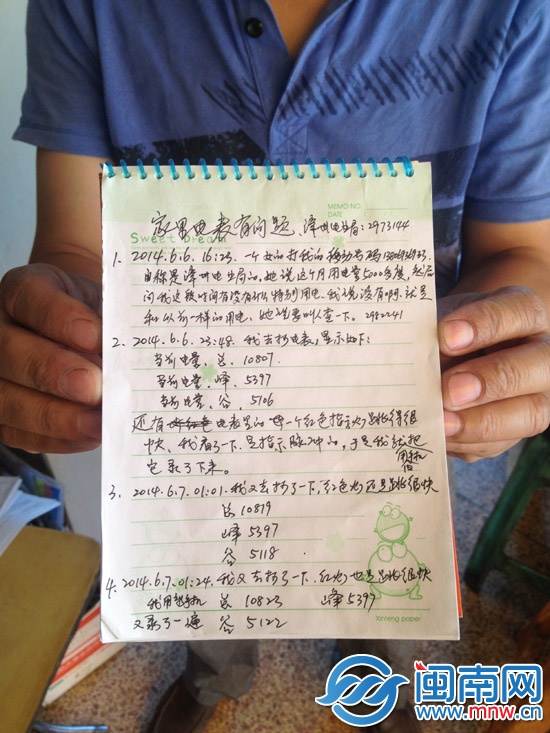 MEMO NO.
DATE
Sweet Dream
家里电表有问题、漳州电业局:2973144
1、2014.6.6.16:23.一个女的打我的移动号码
自称是漳州电业局的,她说这个月用电量5000多度,然后
问我这段时间有没有什么特别用电.我说没有啊.就是
和以前一样的用电、她说要叫人查一下。2982241
2、2014.6.6.23:48.我去抄电表,显示如下:
当前电量、总、10807.
当前电量、峰、5397
当前电量、谷、5106
还有电表里的一个红色指示灯跳得很
快、我看了一下.是指示脉冲的,于是我就把
用手机拍
它录了下来。
3、2014.6.7.01:01.我又去抄了一下,红色灯还是跳很快
总10819
峰5397
谷5118
4、2014.6.7.01:24.我又去抄了一下.红灯也是跳很快
我用手机 总 10823 峰5397
又录了一遍 谷 5122
xinfeng paper
闽南网
www.mnw.cn